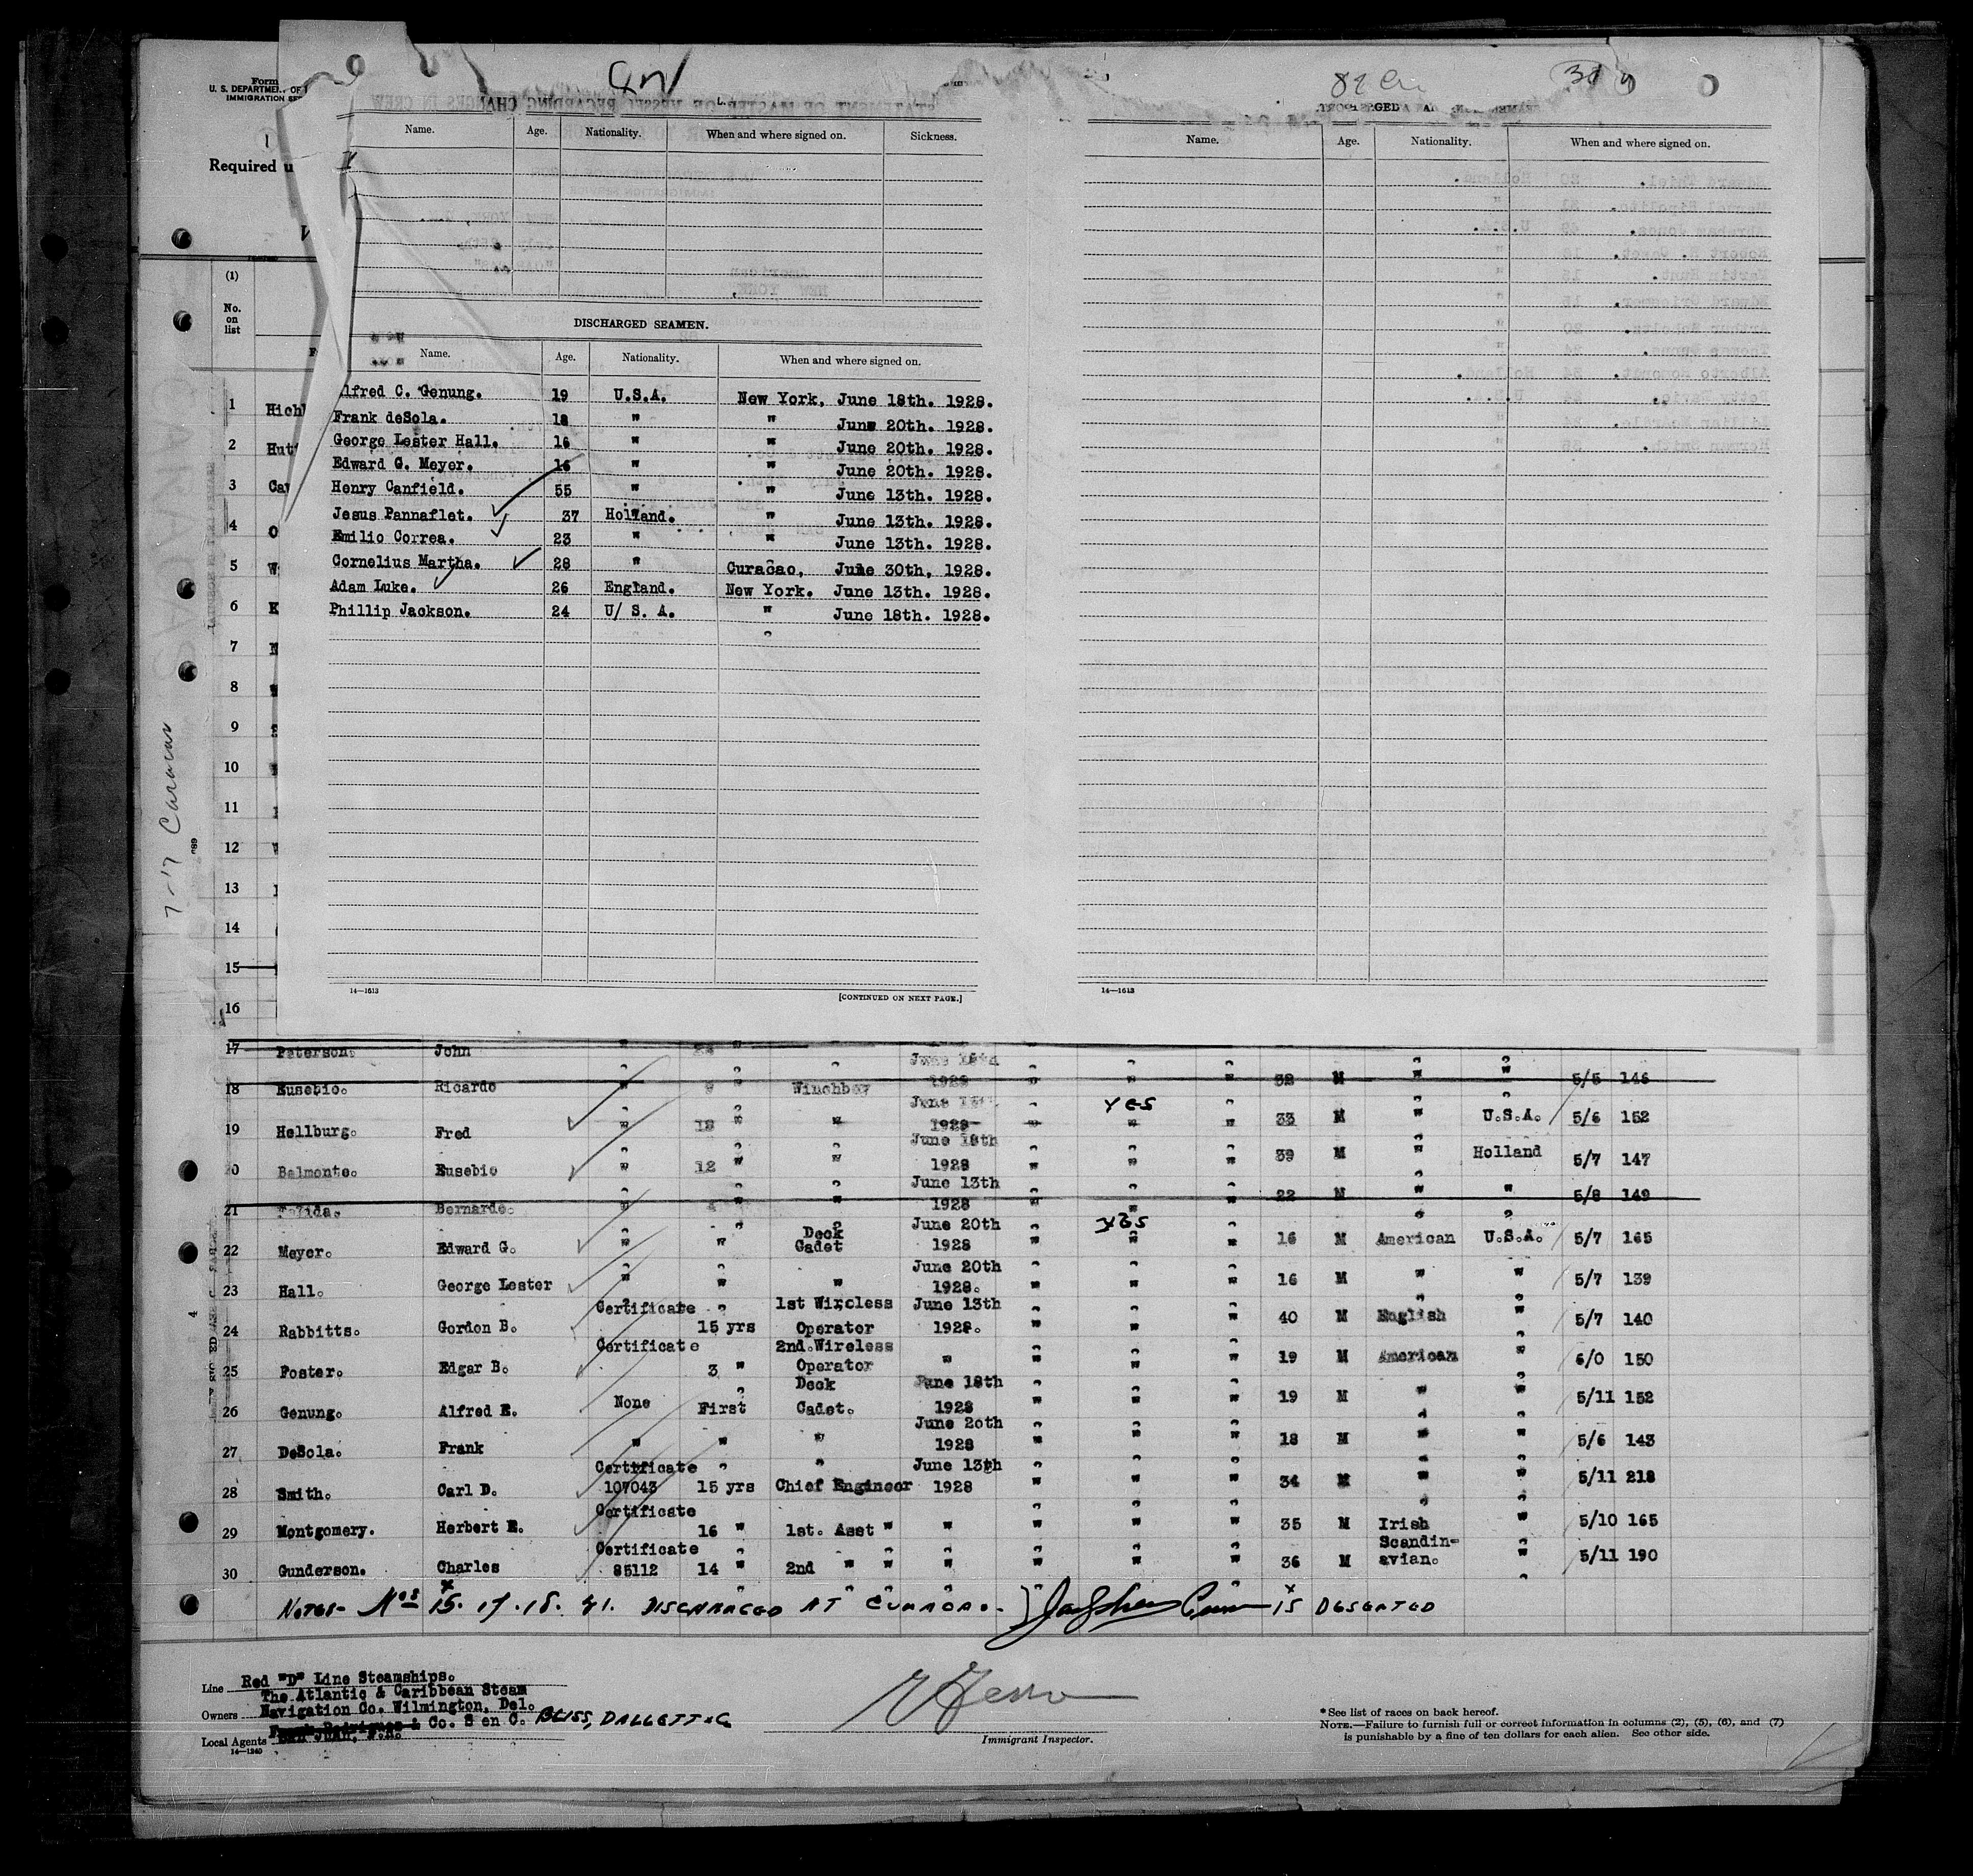 Form
U. S. DEPARTMENT OF
IMMIGRATION SER
Required u
(1)
No.
on
list
Name. Age. Nationality. When and where signed on. Sickness.
Name. Age. Nationality. When and where signed on.
DISCHARGED SEAMEN.
Name. Age. Nationality. When and where signed on.
lfred C. Genung. 19 U.S.A. New York, June 18th. 1928.
Frank deSola. 18 " " June 20th. 1928.
George Lester Hall. 16 " " June 20th. 1928.
Edward G. Meyer. 16 " " June 20th. 1928.
Henry Canfield. 55 " " June 13th. 1928.
Jesus Pannaflet. 37 Holland. " June 13th. 1928.
Emilio Correa. 23 " " June 13th. 1928.
Cornelius Martha. 28 " Curacao, June 30th, 1928.
Adam Luke. 26 England. New York. June 13th. 1928.
Phillip Jackson. 24 U/ S. A. " June 18th. 1928.
14—1613 [CONTINUED ON NEXT PAGE.] 14—1613
1 Hichl
2 Hutt
3 Cav
4 O
5 W
6 K
7
8
9
10
11
12
13
14
15
16
7-17 Caracas
17 Peterson. John
18 Eusebio. Ricardo " 9 " Winchboy June 1928 " " " 32 M " " 5/5 146
19 Hellburg. Fred " 18 " " June 1928 " YES " 33 M " U.S.A. 5/6 152
20 Belmonte. Eusebio " 12 " " June 18th 1928 " " " 39 M " Holland 5/7 147
21 Bernardo. " 4 " " June 13th 1928 " " " 22 M " " 5/8 149
22 Meyer. Edward G. " " Deck Cadet June 20th 1928 " YES " 16 M American U.S.A. 5/7 165
23 Hall. George Lester " " " June 20th 1928. " " " 16 M " " 5/7 139
24 Rabbitts. Gordon B. Certificate 15 yrs 1st Wireless Operator June 13th 1928. " " " 40 M English " 5/7 140
25 Foster. Edgar B. Certificate 3 " 2nd. Wireless Operator " " " " 19 M American " 6/0 150
26 Genung. Alfred E. None First Deck Cadet. June 18th 1928 " " " 19 M " " 5/11 152
27 DeSola. Frank " " " June 20th 1928 " " " 18 M " " 5/6 143
28 Smith. Carl D. Certificate 107043 15 yrs Chief Engineer June 13th 1928 " " " 34 M " " 5/11 218
29 Montgomery. Herbert E. Certificate 16 " 1st. Asst " " " " " 35 M Irish " 5/10 165
30 Gunderson. Charles Certificate 85112 14 " 2nd " " " " " " 36 M Scandin-avian. " 5/11 190
NOTES- Nos 15. 17. 18. 21. DISCHARGED AT CURACAO. 15 DESERTED
Line Red "D" Line Steamships.
The Atlantic & Caribbean Steam
Owners Navigation Co. Wilmington, Del.
Co. S en C. BLISS, DALLETT & Co
Local Agents San Juan, P.R.
14—1240
Immigrant Inspector.
* See list of races on back hereof.
NOTE.—Failure to furnish full or correct information in columns (2), (5), (6), and (7)
is punishable by a fine of ten dollars for each alien. See other side.